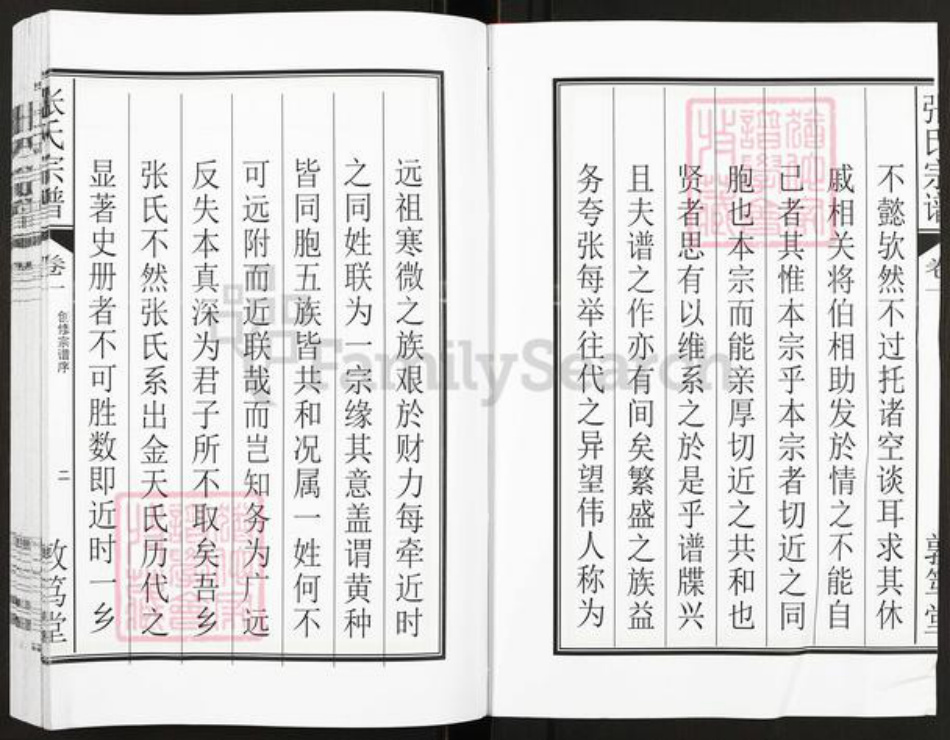 张氏宗谱
卷一
不懿欤然不过托诸空谈耳求其休
戚相关将伯相助发於情之不能自
已者其惟本宗乎本宗者切近之同
胞也本宗而能亲厚切近之共和也
贤者思有以维系之於是乎谱牒兴
且夫谱之作亦有间矣繁盛之族益
务夸张每举往代之异望伟人称为
远祖寒微之族艰於财力每牵近时
之同姓联为一宗缘其意盖谓黄种
皆同胞五族皆共和况属一姓何不
可远附而近联哉而岂知务为广远
反失本真深为君子所不取矣吾乡
张氏不然张氏系出金天氏历代之
显著史册者不可胜数即近时一乡
张氏宗谱
卷一
创修宗谱序
二
敦笃堂
FamilySearch